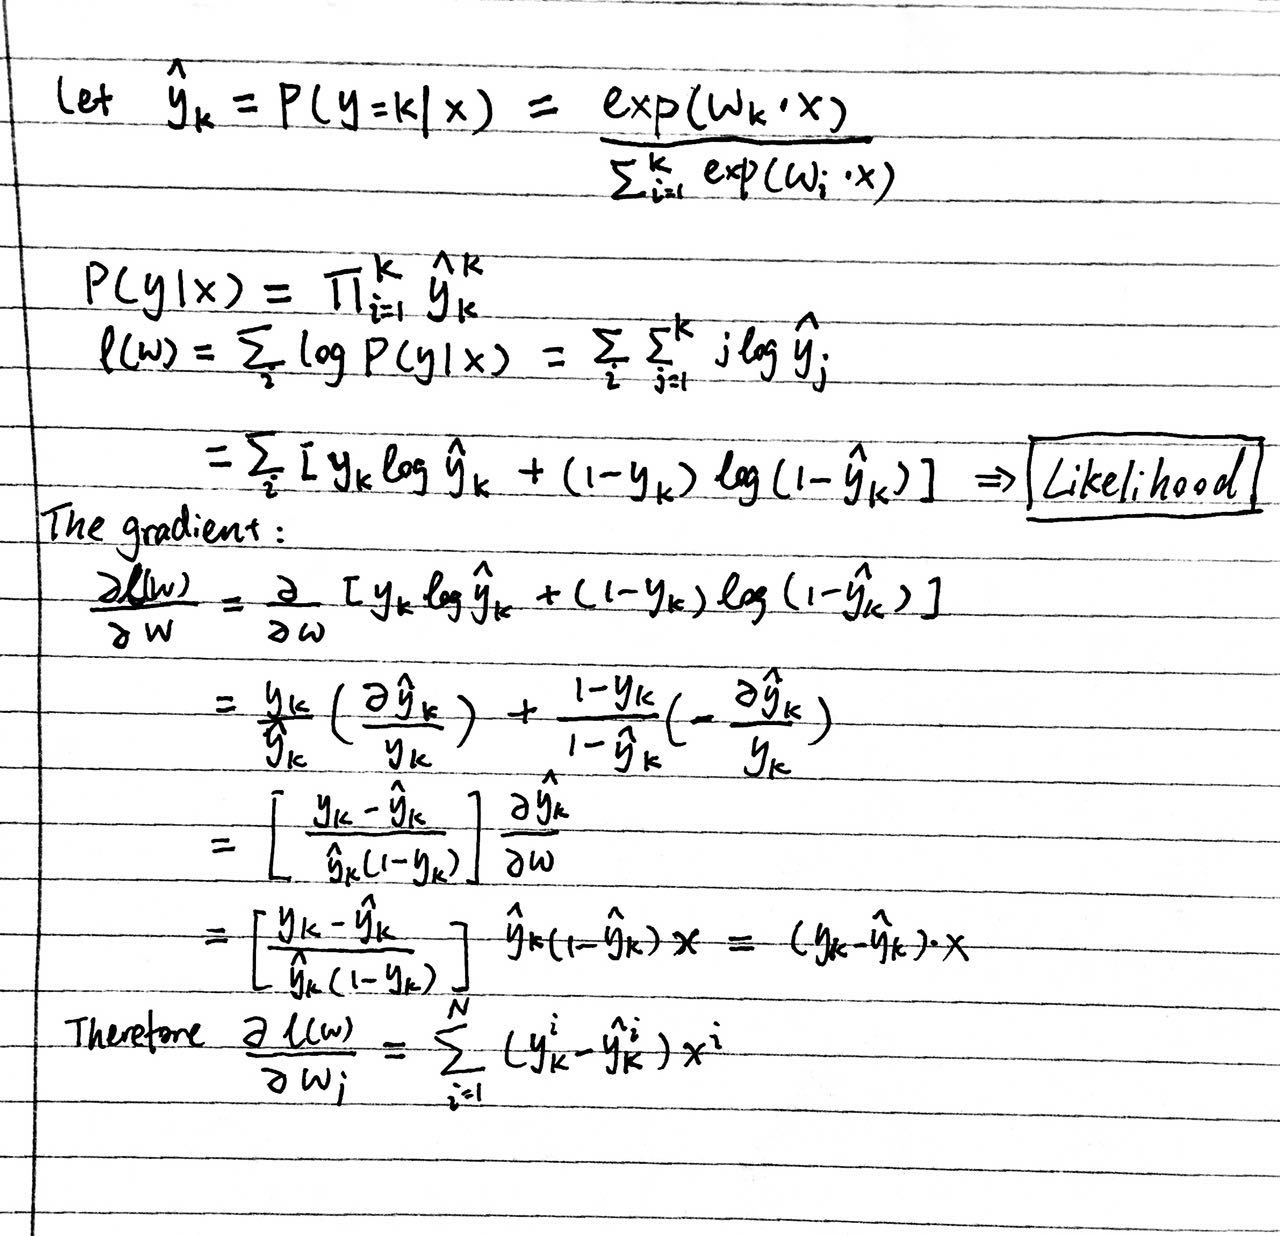 Let ŷ_k = P(y=k|x) = exp(w_k·x) / Σ_{i=1}^{k} exp(w_i·x)
P(y|x) = Π_{i=1}^{k} ŷ_k^k
l(w) = Σ_i log P(y|x) = Σ_i Σ_{j=1}^{k} j log ŷ_j
= Σ_i [y_k log ŷ_k + (1-y_k) log(1-ŷ_k)] ⇒ Likelihood
The gradient:
∂l(w)/∂w = ∂/∂w [y_k log ŷ_k + (1-y_k) log(1-ŷ_k)]
= y_k/ŷ_k (∂ŷ_k/y_k) + (1-y_k)/(1-ŷ_k) (-∂ŷ_k/y_k)
= [(y_k-ŷ_k)/(ŷ_k(1-y_k))] ∂ŷ_k/∂w
= [(y_k-ŷ_k)/(ŷ_k(1-y_k))] ŷ_k(1-ŷ_k)x = (y_k-ŷ_k)·x
Therefore ∂l(w)/∂w_j = Σ_{i=1}^{N} (y_k^i-ŷ_k^i)x^i